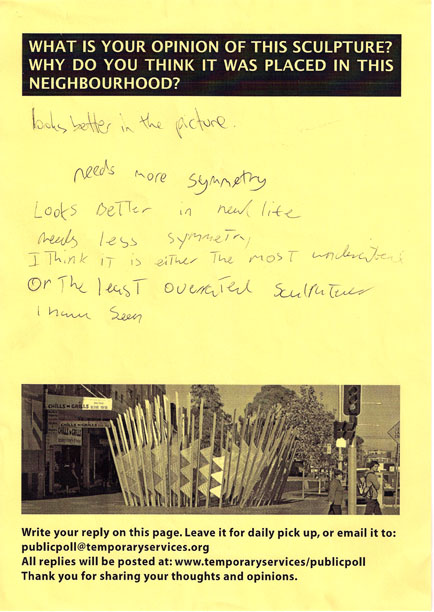 WHAT IS YOUR OPINION OF THIS SCULPTURE?
WHY DO YOU THINK IT WAS PLACED IN THIS
NEIGHBOURHOOD?
looks better in the picture.
needs more symmetry
Looks Better in real life
needs less symmetry
I think it is either the most underrated
Or the least overrated sculpture
I have seen
CHILLS 'N' GRILLS
CHILLS 'N' GRILLS
Write your reply on this page. Leave it for daily pick up, or email it to:
publicpoll@temporaryservices.org
All replies will be posted at: www.temporaryservices/publicpoll
Thank you for sharing your thoughts and opinions.